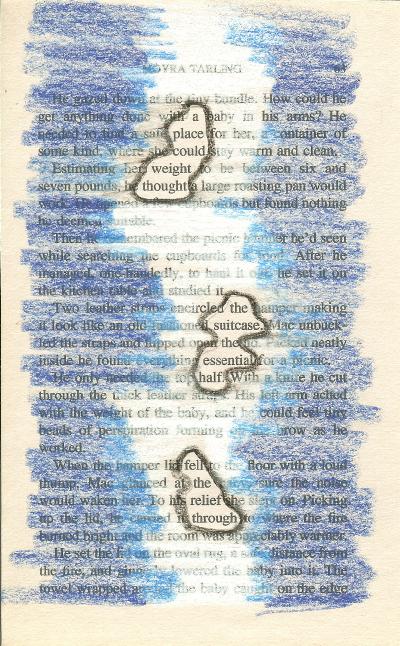 MOYRA TARLING
He gazed down at the tiny bundle. How could he
get anything done with a baby in his arms? He
needed to find a safe place for her, a container of
some kind, where she could stay warm and clean.
Estimating her weight to be between six and
seven pounds, he thought a large roasting pan would
work. He opened cupboards but found nothing
he deemed suitable.
Then he remembered the picnic hamper he'd seen
while searching the cupboards for food. After he
managed, one-handedly, to haul it out, he set it on
the kitchen table and studied it.
Two leather straps encircled the hamper making
it look like an old fashioned suitcase. Mac unbuck-
led the straps and flipped open the lid. Packed neatly
inside he found everything essential for a picnic.
He only needed the top half. With a knife he cut
through the thick leather straps. His left arm ached
with the weight of the baby, and he could feel tiny
beads of perspiration forming on his brow as he
worked.
When the hamper lid fell to the floor with a loud
thump, Mac glanced at the sure the noise
would waken her. To his relief she slept on. Picking
up the lid, he carried it through to where the fire
burned bright and the room was appreciably warmer.
He set the lid on the oval rug, a safe distance from
the fire, and gingerly lowered the baby into it. The
towel wrapped around the baby caught on the edge